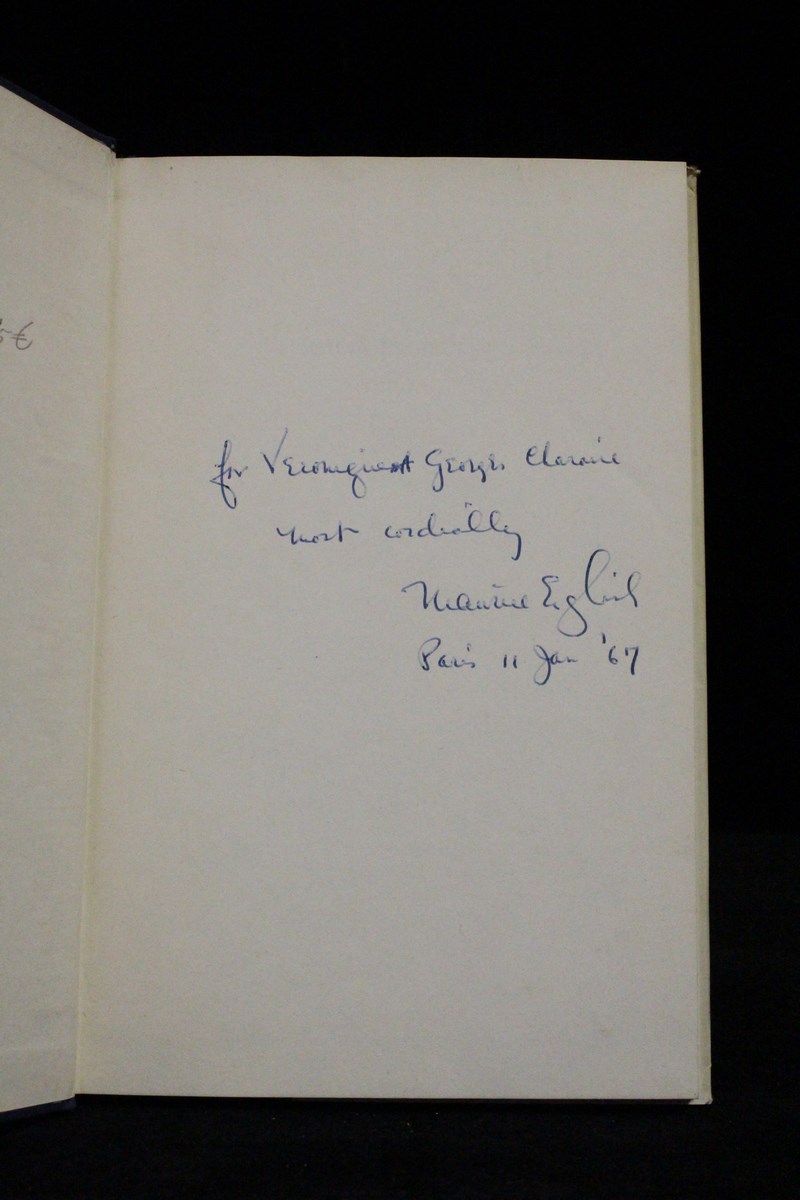 5€
for Veronique et Georges
most cordially
Maurice English
Paris 11 Jan '67